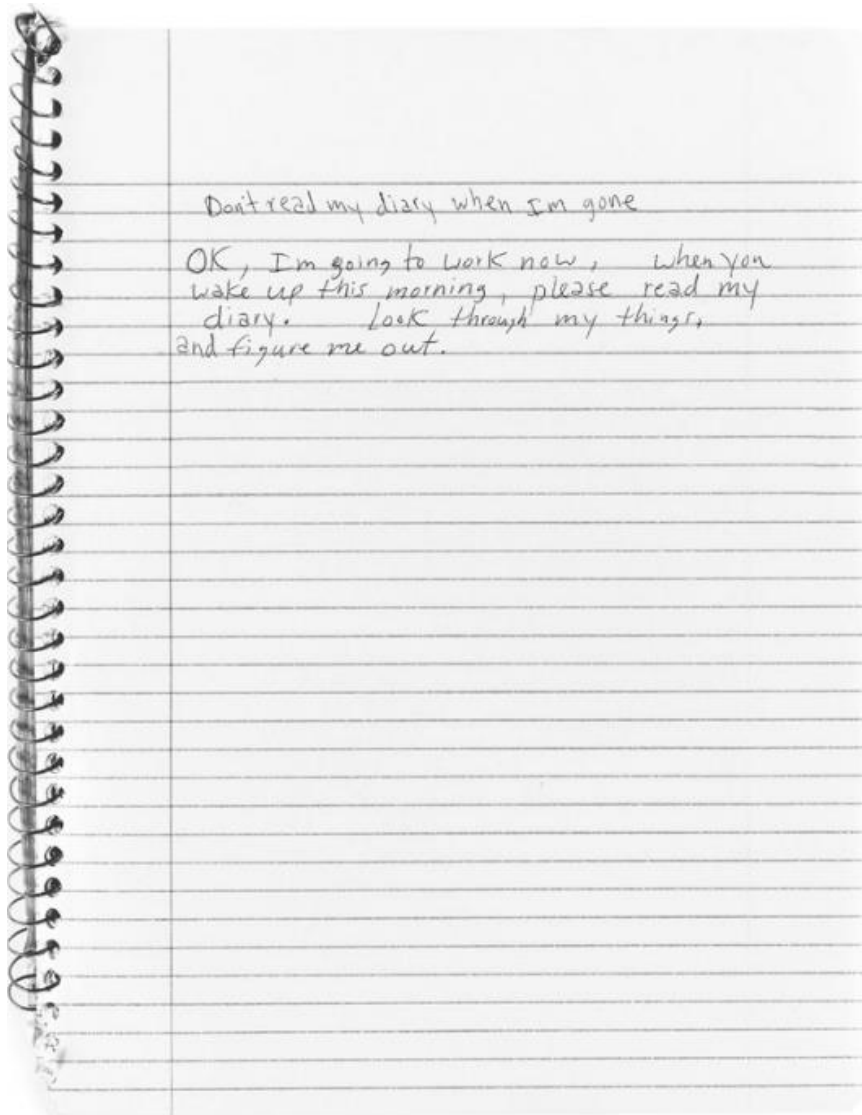 Don't read my diary when I'm gone
OK, I'm going to work now, when you
wake up this morning, please read my
diary. Look through my things,
and figure me out.